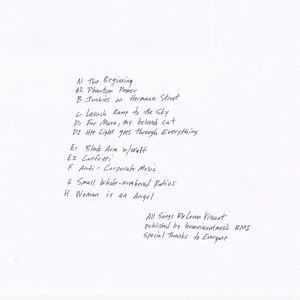 A1 The Beginning
A2 Phantom Power
B Junkies on Hermann Street
C Launch Ramp to the Sky
D1 For Mona, my beloved cat
D2 Her Light goes through Everything
E1 Black Arm w/Wolf
E2 Confetti
F Anti-Corporate Music
G Small Whole-numbered Ratios
H Woman is an Angel
All Songs By Levon Vincent
published by BMI
Special Thanks to Everyone